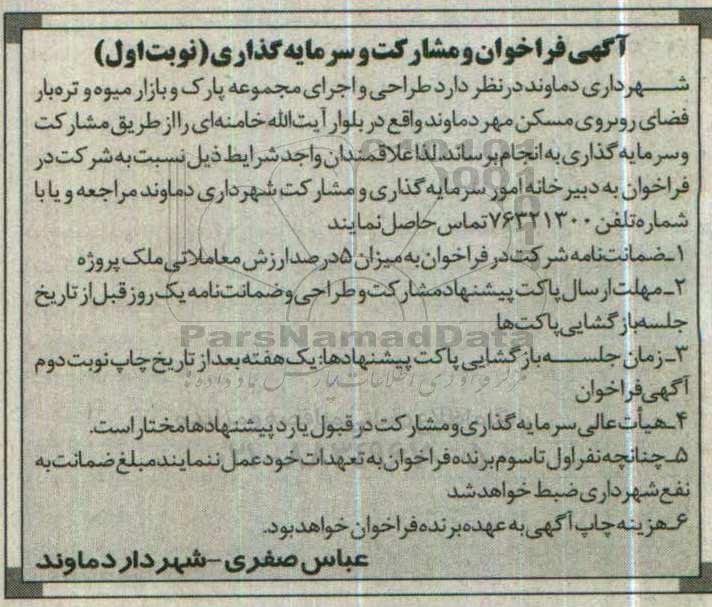 آگهی فراخوان و مشارکت و سرمایه گذاری (نوبت اول)
شهرداری دماوند در نظر دارد طراحی و اجرای مجموعه پارک و بازار میوه و تره‌بار
فضای روبروی مسکن مهر دماوند واقع در بلوار آیت‌الله خامنه‌ای را از طریق مشارکت
و سرمایه گذاری به انجام برساند. لذا علاقمندان واجد شرایط ذیل نسبت به شرکت در
فراخوان به دبیرخانه امور سرمایه گذاری و مشارکت شهرداری دماوند مراجعه و یا با
شماره تلفن ۷۶۳۲۱۳۰۰ تماس حاصل نمایند
۱ـ ضمانت‌نامه شرکت در فراخوان به میزان ۵ درصد ارزش معاملاتی ملک پروژه
۲ـ مهلت ارسال پاکت پیشنهاد مشارکت و طراحی و ضمانت‌نامه یک روز قبل از تاریخ
جلسه بازگشایی پاکت‌ها
ParsNamadData
۳ـ زمان جلسه بازگشایی پاکت پیشنهادها: یک هفته بعد از تاریخ چاپ نوبت دوم
آگهی فراخوان
۴ـ هیأت عالی سرمایه گذاری و مشارکت در قبول یا رد پیشنهادها مختار است.
۵ـ چنانچه نفر اول تا سوم برنده فراخوان به تعهدات خود عمل ننمایند مبلغ ضمانت به
نفع شهرداری ضبط خواهد شد
۶ـ هزینه چاپ آگهی به عهده برنده فراخوان خواهد بود.
عباس صفری - شهردار دماوند